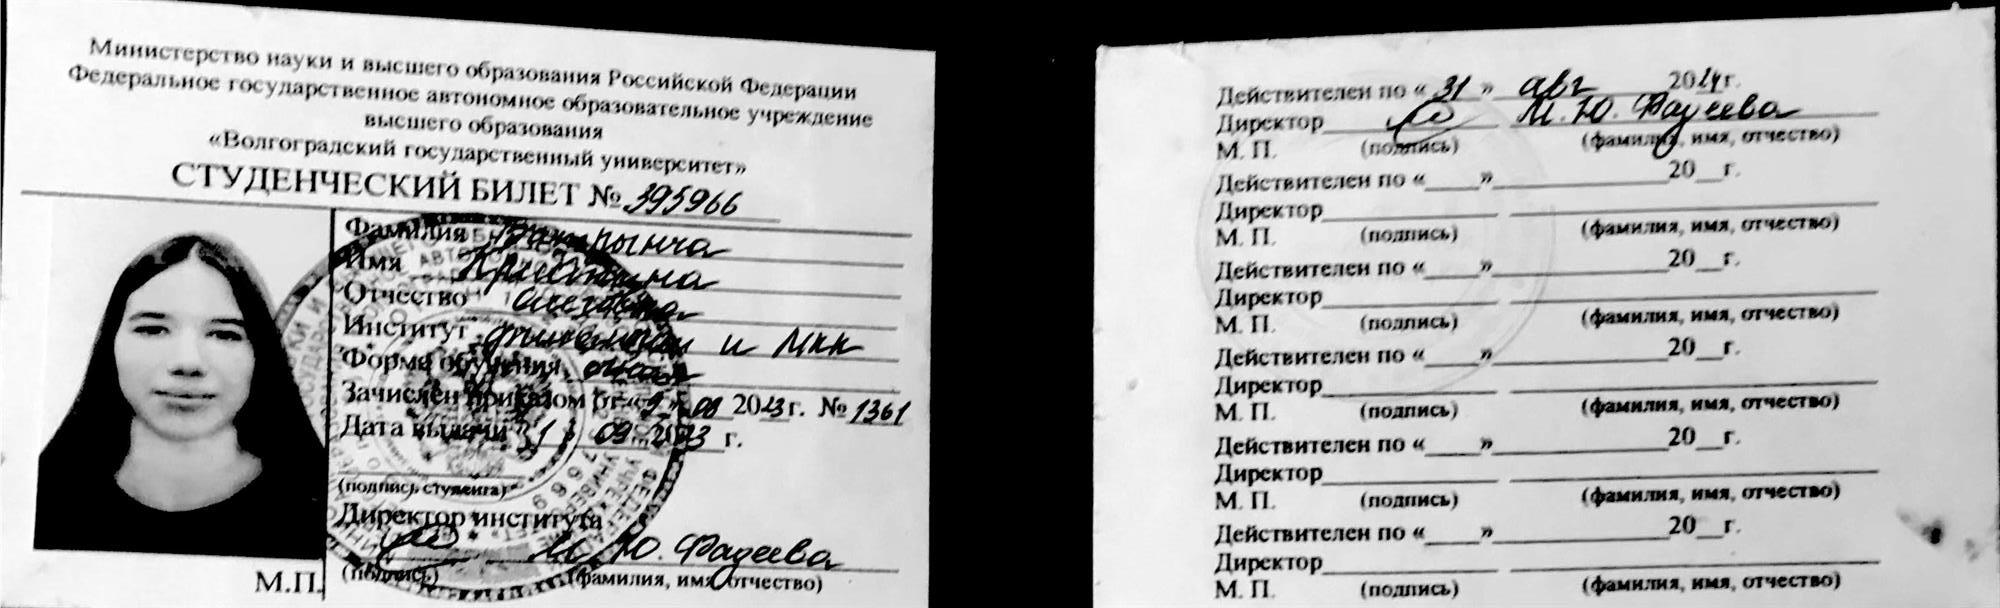 Министерство науки и высшего образования Российской Федерации
Федеральное государственное автономное образовательное учреждение
высшего образования
«Волгоградский государственный университет»
СТУДЕНЧЕСКИЙ БИЛЕТ № 395966
Фамилия
Имя Кристина
Отчество
Институт филологии и МКК
Форма обучения очная
Зачислен приказом от « » 08 2023 г. № 1361
Дата выдачи « 1 » 09 2023 г.
(подпись студента)
Директор института
М. Ю. Фадеева
М.П. (подпись) (фамилия, имя, отчество)
Действителен по « 31 » авг 2024 г.
Директор М. Ю. Фадеева
М. П. (подпись) (фамилия, имя, отчество)
Действителен по «____»____ 20__г.
Директор
М. П. (подпись) (фамилия, имя, отчество)
Действителен по «____»____ 20__г.
Директор
М. П. (подпись) (фамилия, имя, отчество)
Действителен по «____»____ 20__г.
Директор
М. П. (подпись) (фамилия, имя, отчество)
Действителен по «____»____ 20__г.
Директор
М. П. (подпись) (фамилия, имя, отчество)
Действителен по «____»____ 20__г.
Директор
М. П. (подпись) (фамилия, имя, отчество)